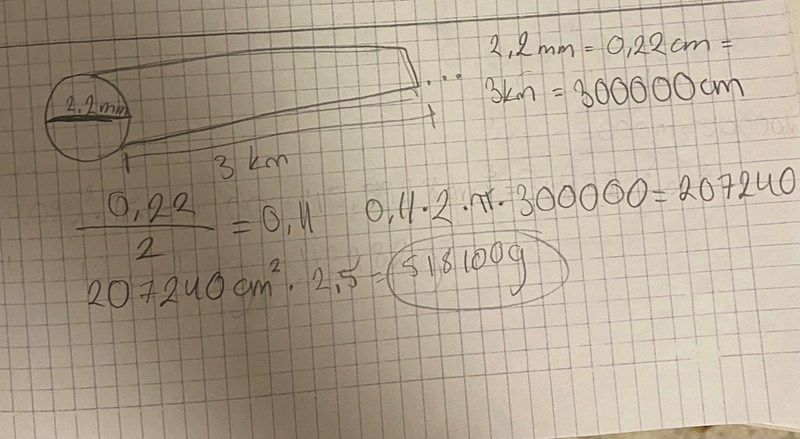 2,2 mm = 0,22 cm =
2,2 mm
3 km = 300000 cm
3 km
0,22 / 2 = 0,11   0,11 · 2 · π · 300000 = 207240
207240 cm² · 2,5 = 518100g